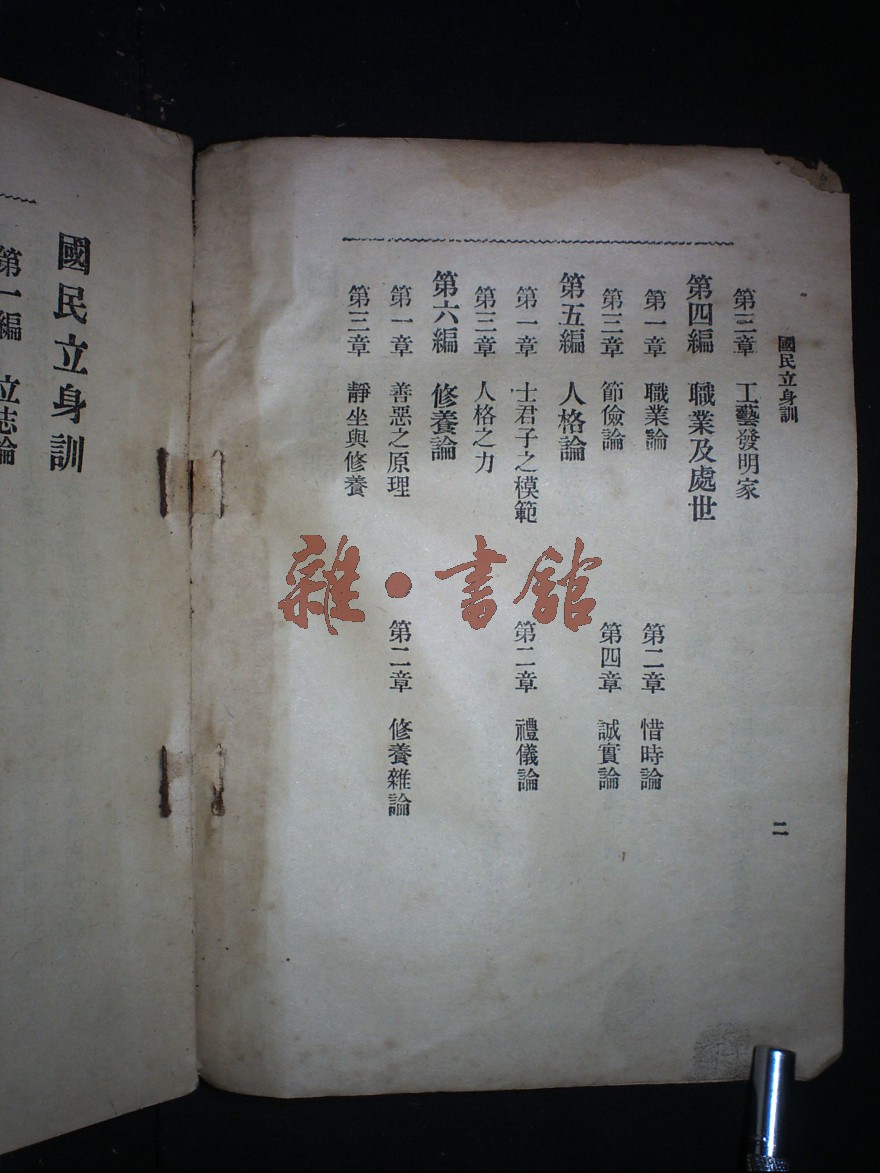 國民立身訓
二
第三章 工藝發明家
第四編 職業及處世
第一章 職業論
第二章 惜時論
第三章 節儉論
第四章 誠實論
第五編 人格論
第一章 士君子之模範
第二章 禮儀論
第三章 人格之力
第六編 修養論
第一章 善惡之原理
第二章 修養雜論
第三章 靜坐與修養
雜·書館
國民立身訓
第一編 立志論